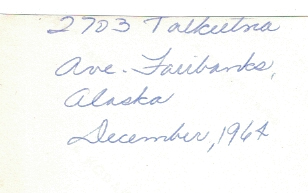 2703 Talkeetna
Ave. Fairbanks,
Alaska
December, 1964